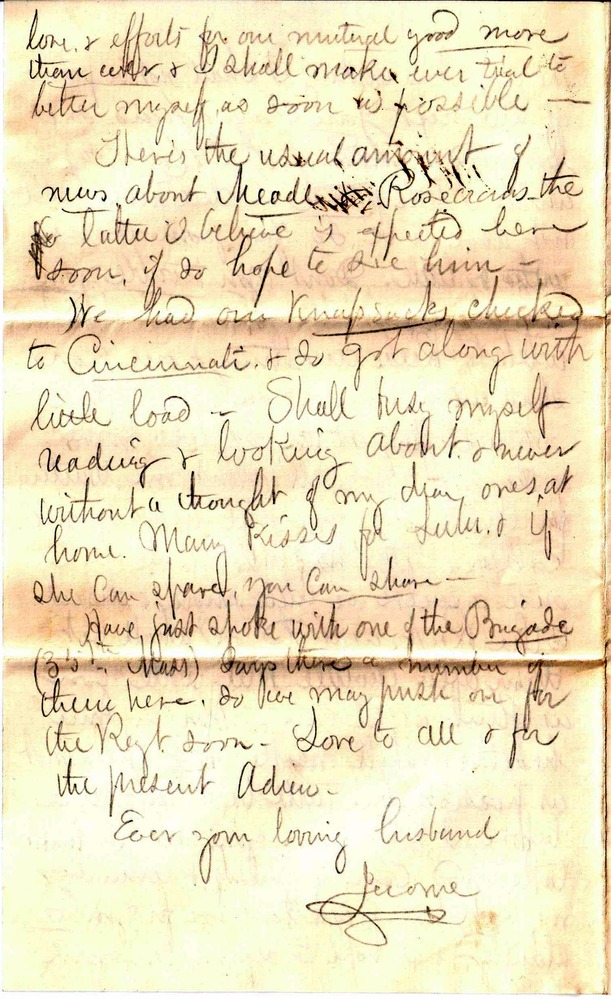 love, & efforts for our mutual good more
than ever, & I shall make ever trial to
better myself, as soon as possible —
There's the usual amount of
news about Meade Rosecrans the
latter I believe is expected here
soon, if so hope to see him –
We had our Knapsacks checked
to Cincinnati, & so got along with
little load – Shall busy myself
reading & looking about & never
without a thought of my dear ones, at
home. Many Kisses for Lulu. & if
she can spare, you can share —
Have just spoke with one of the Brigade
(35th Mass) Says there a number of
them here, so we may push on for
the Regt soon – Love to all & for
the present Adieu –
Ever your loving husband
Jerome